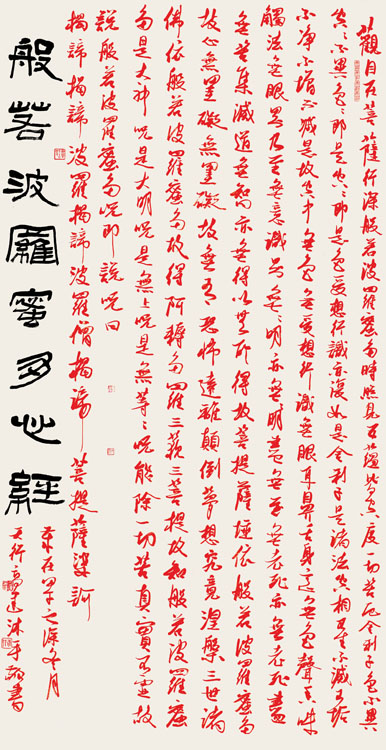 觀自在菩薩行深般若波羅蜜多時照見五蘊皆空度一切苦厄舍利子色不異
空空不異色色即是空空即是色受想行識亦復如是舍利子是諸法空相不生不滅不垢
不淨不增不減是故空中無色無受想行識無眼耳鼻舌身意無色聲香味
觸法無眼界乃至無意識界無無明亦無無明盡乃至無老死亦無老死盡
無苦集滅道無智亦無得以無所得故菩提薩埵依般若波羅蜜多
故心無罣礙無罣礙故無有恐怖遠離顛倒夢想究竟涅槃三世諸
佛依般若波羅蜜多故得阿耨多羅三藐三菩提故知般若波羅蜜
多是大神咒是大明咒是無上咒是無等等咒能除一切苦真實不虛故
說般若波羅蜜多咒即說咒曰
揭諦揭諦波羅揭諦波羅僧揭諦菩提薩婆訶
般若波羅蜜多心經
在甲午之深冬月
天行沐手敬書